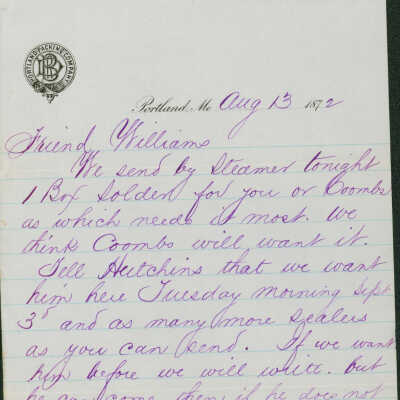 PORTLAND PACKING COMPANY
Portland, Me Aug 13 1872
Friend Williams
We send by Steamer tonight
1 Box Solder for you or Coombs
as which needs it most. We
think Coombs will want it.
Tell Hutchins that we want
him here Tuesday morning Sept
3d and as many more Sealers
as you can send. If we want
him before we will write. But
he can come then if he does not